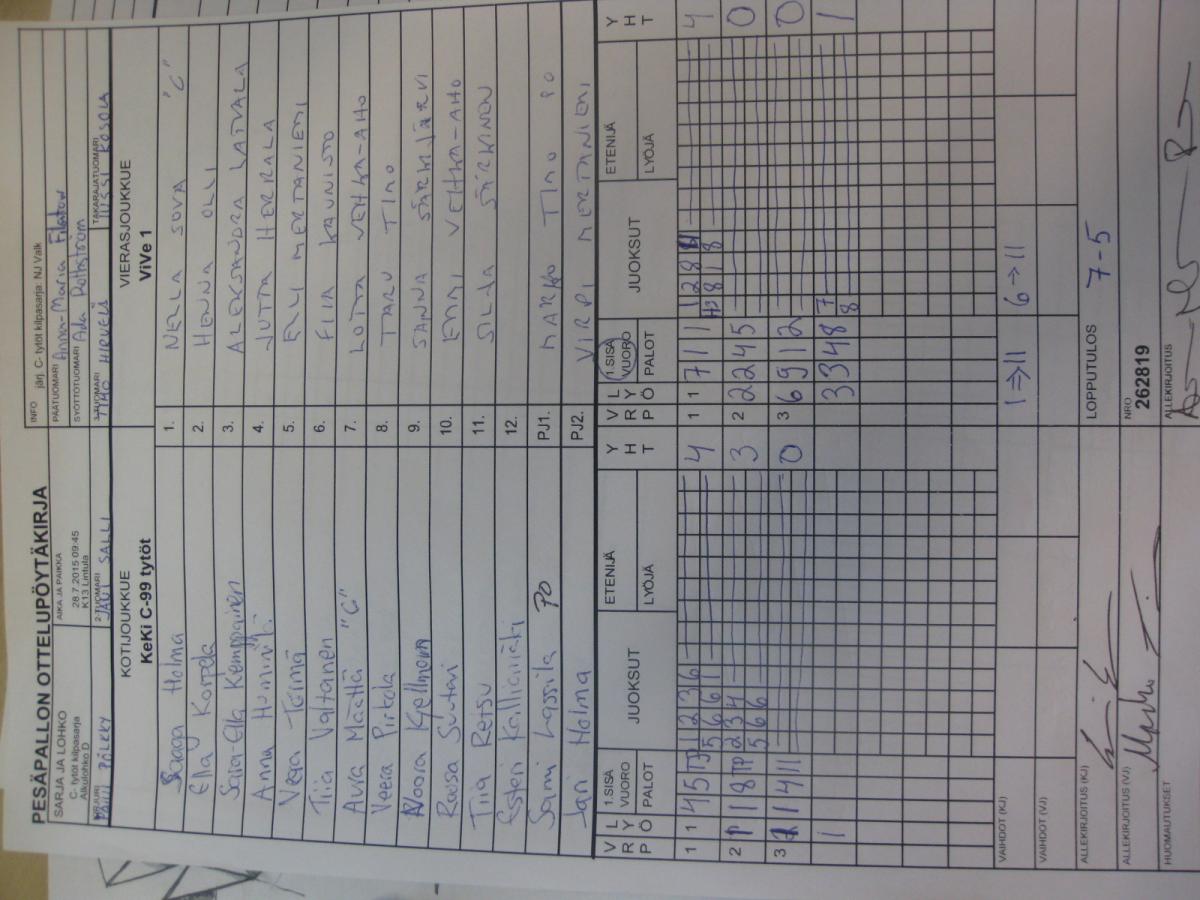 PESÄPALLON OTTELUPÖYTÄKIRJA
SARJA JA LOHKO
C- tytöt kilpasarja
Alkulohko D
AIKA JA PAIKKA
28.7.2015 09:45
K13 Lintula
INFO järj. C- tytöt kilpasarja: NJ Valk
PÄÄTUOMARI Anna-Maria Filatov
SYÖTTÖTUOMARI Ada Rothström
PÖLKKY
2-TUOMARI JARI SALLI
3-TUOMARI TIMO HIRVELÄ
TAKARAJATUOMARI JUSSI KOSOLA
KOTIJOUKKUE
KeKi C-99 tytöt
VIERASJOUKKUE
ViVe 1
Saaga Holma
1. NELLA SOVA "C"
Ella Korpela
2. HENNA OLLI
Saia-Ella Kemppainen
3. ALEKSANDRA LATVALA
Anna Humina
4. JUTTA HERRALA
Veera Törmä
5. ELLI MERTANIEMI
Tiia Valtanen
6. FIIA KAUNISO
Aura Määttä "C"
7. LOTTA VEHKA-AHO
Veera Pirkola
8. TARU TINO
Noora Kjellman
9. SANNA SÄRKIJÄRVI
Roosa Suutari
10. EMMI VEHKA-AHO
Tiia Retsu
11. SILJA SÄRKINEN
Esteri Kalliomäki
12.
Sami Lassila PO
PJ1. MARKO TINO PO
Jari Holma
PJ2. VIRPI MERTANIEMI
V R P
L Y Ö
1.SISÄ VUORO
PALOT
JUOKSUT
ETENIJÄ
LYÖJÄ
Y H T
V R P
L Y Ö
1.SISÄ VUORO
PALOT
JUOKSUT
ETENIJÄ
LYÖJÄ
Y H T
1 1 4 5 TP 1 2 3 6 4
5 6 6 1
1 1 7 1 1 1 2 8 4
8 1 8
2 1 1 8 TP 2 3 4 3
5 6 6
2 2 2 4 5 0
3 1 1 4 11 0
3 6 9 1 2 0
1
3 3 4 8 7 1
8
VAIHDOT (KJ)
1 => 11 6 -> 11
VAIHDOT (VJ)
ALLEKIRJOITUS (KJ)
LOPPUTULOS 7-5
ALLEKIRJOITUS (VJ)
NRO
262819
HUOMAUTUKSET
ALLEKIRJOITUS